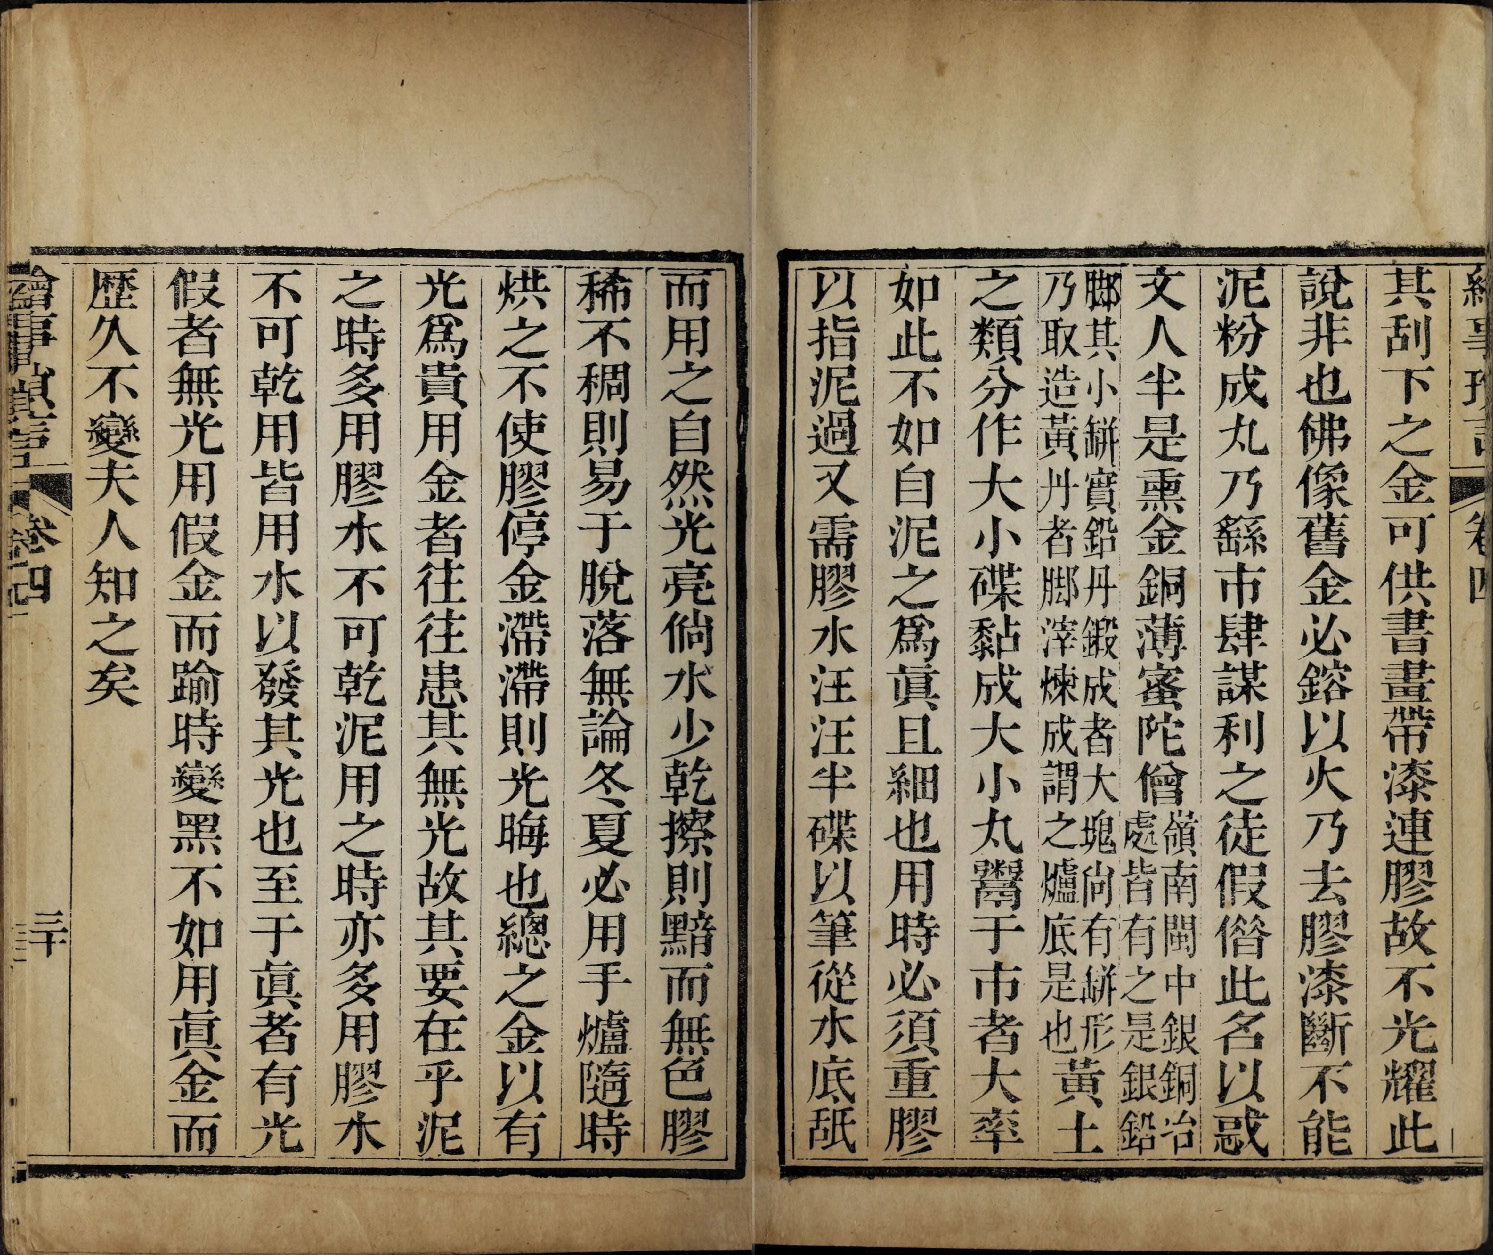 卷四
其刮下之金可供書畫帶漆連膠故不光耀此
說非也佛像舊金必鎔以火乃去膠漆斷不能
泥粉成丸乃繇市肆謀利之徒假僣此名以惑
文人半是熏金銅薄蜜陀僧嶺南閩中銀銅冶
處皆有之是銀鉛
脚其小缾實鉛丹鍛成者大塊尙有缾形
乃取造黃丹者脚滓煉成謂之爐底是也黃土
之類分作大小碟黏成大小丸鬻于市者大率
如此不如自泥之爲眞且細也用時必須重膠
以指泥過又需膠水汪汪半碟以筆從水底舐
而用之自然光亮倘水少乾擦則黯而無色膠
稀不稠則易于脫落無論冬夏必用手爐隨時
烘之不使膠停金滯滯則光晦也總之金以有
光爲貴用金者往往患其無光故其要在乎泥
之時多用膠水不可乾泥用之時亦多用膠水
不可乾用皆用水以發其光也至于眞者有光
假者無光用假金而踰時變黑不如用眞金而
歷久不變夫人知之矣
繪事瑣言 卷四 三十